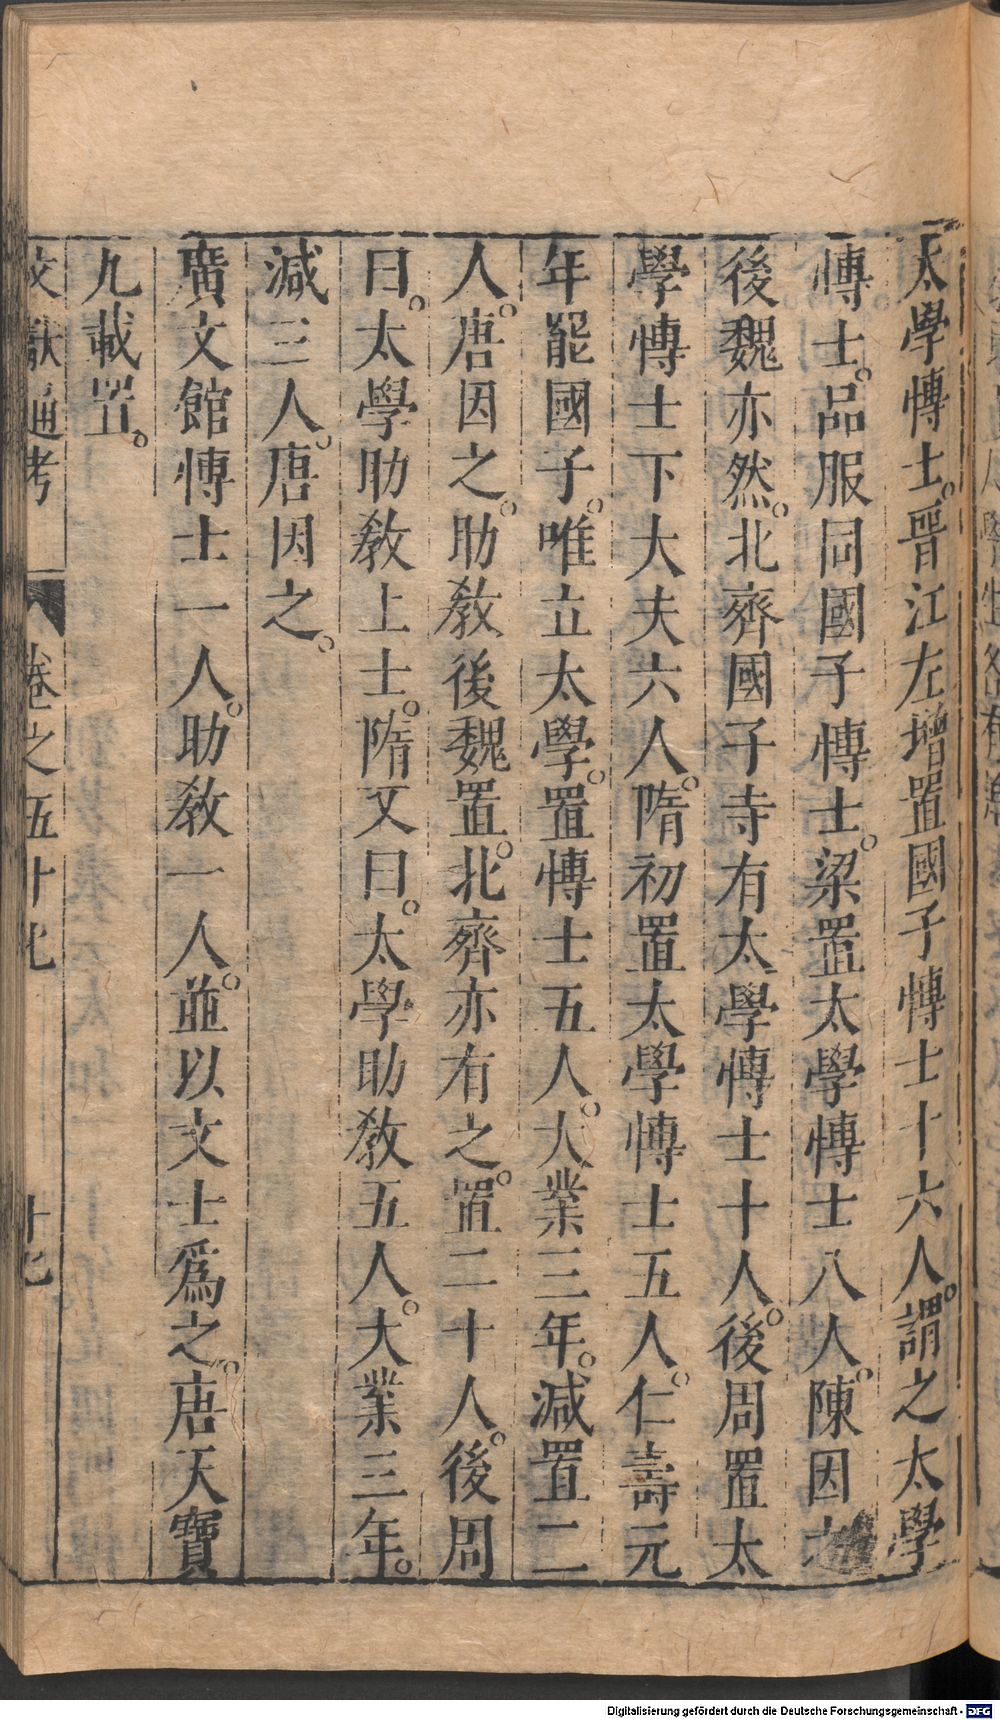 太學博士。晉江左增置國子博士十六人。謂之太學
博士。品服同國子博士。梁置太學博士八人。陳因
後魏亦然。北齊國子寺有太學博士十人。後周置太
學博士下大夫六人。隋初置太學博士五人。仁壽元
年罷國子。唯立太學。置博士五人。大業三年。減置二
人。唐因之。助敎後魏置。北齊亦有之。置二十人。後周
曰。太學助敎上士。隋又曰。太學助敎五人。大業三年。
減三人。唐因之。
廣文館博士一人。助敎一人。並以文士爲之。唐天寶
九載置。
文獻通考 卷之五十七 十七
Digitalisierung gefördert durch die Deutsche Forschungsgemeinschaft - DFG